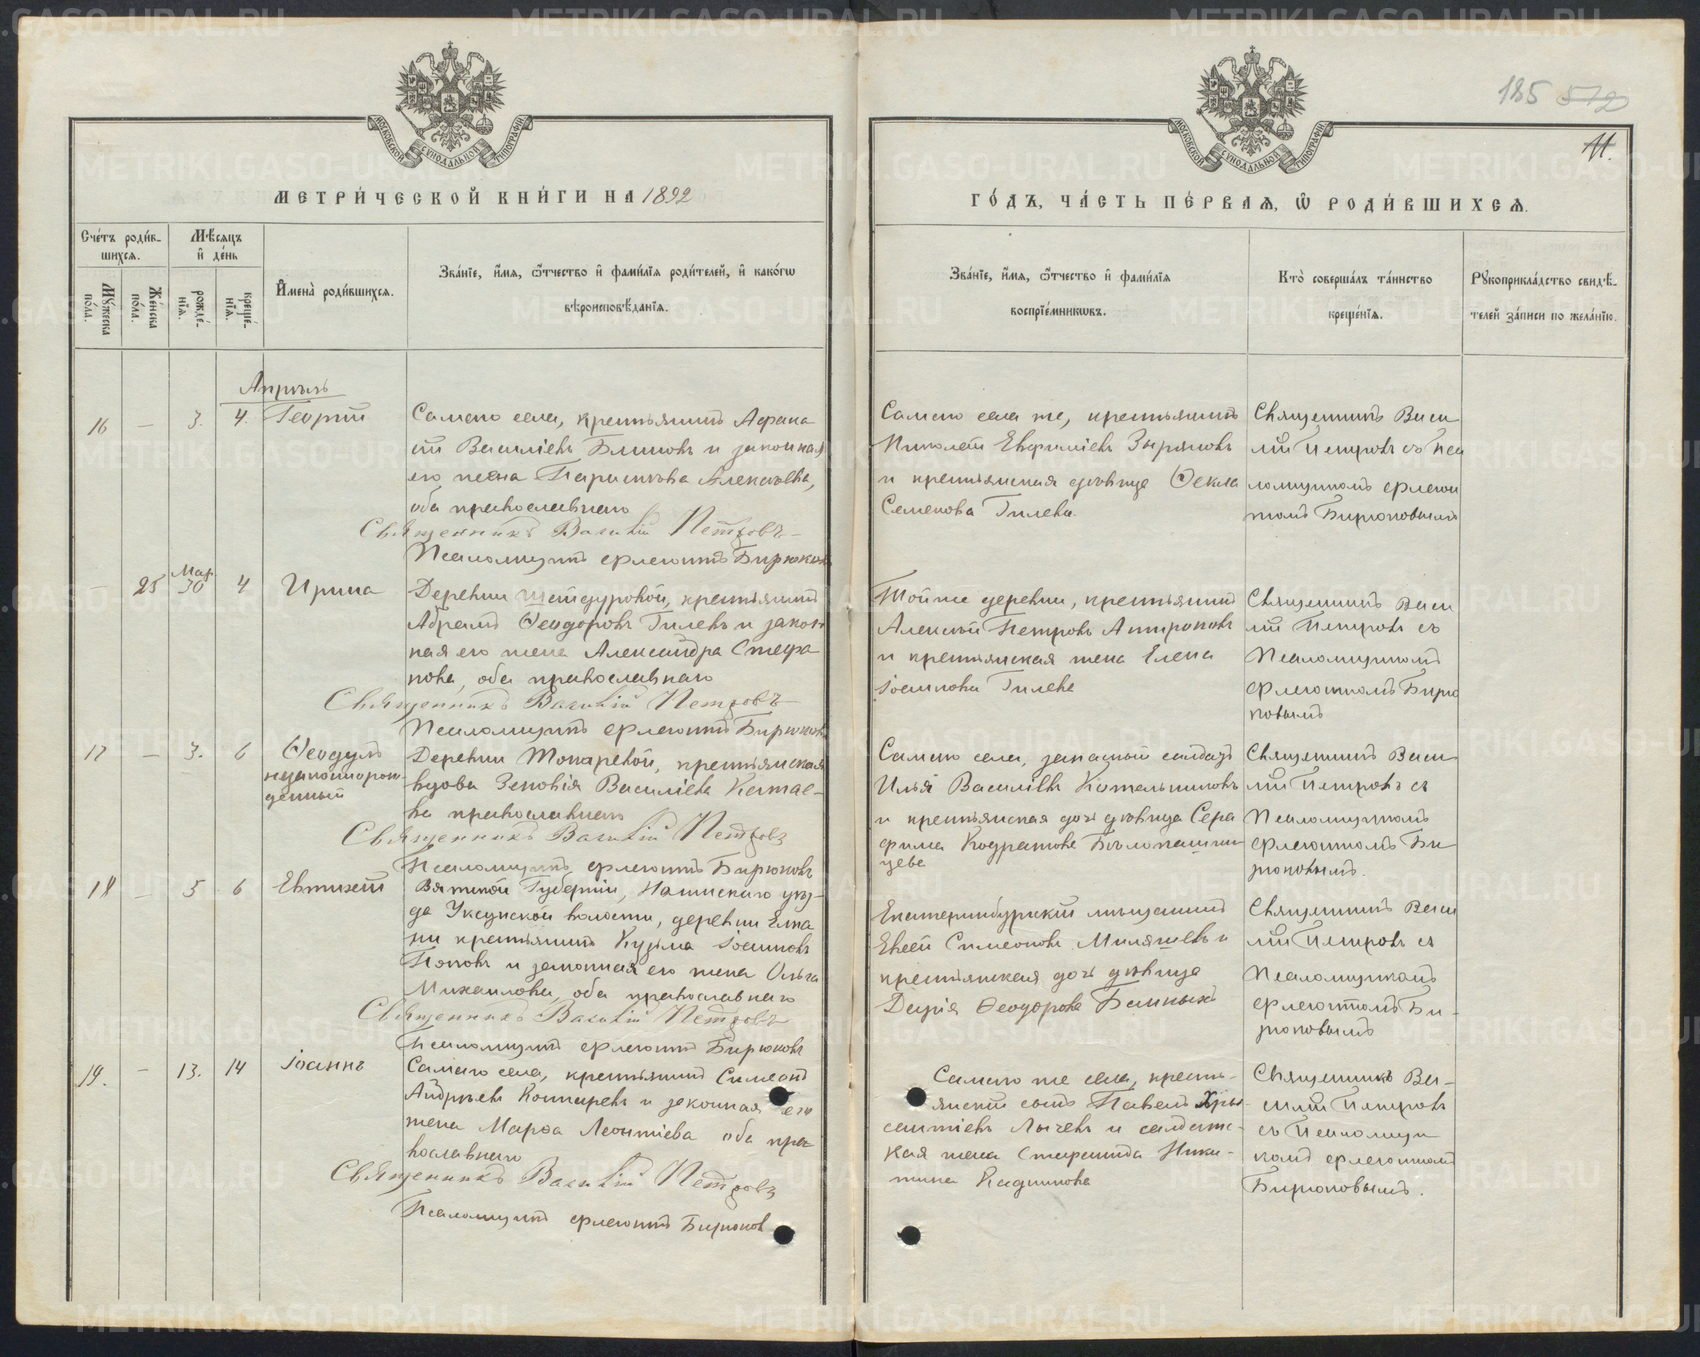 185 572
11.
МОСКОВСКОЙ СѴНОДАЛЬНОЙ ТИПОГРАФІИ
МОСКОВСКОЙ СѴНОДАЛЬНОЙ ТИПОГРАФІИ
МЕТРИ́ЧЕСКОЙ КНИ́ГИ НА 1892
ГО́ДЪ, ЧА́СТЬ ПЕ́РВАѦ, Ѡ҆ РОДИ́ВШИХСѦ.
Сче́тъ роди́в-
шихся.
Мѣ́сяцъ
и҆ де́нь
Мꙋ́жеска по́ла.
Же́нска по́ла.
рожде́-нїя.
креще́-нїя.
И҆мена̀ роди́вшихся.
Зва́нїе, и҆́мя, ѻ҆́тчество и҆ фами́лїя роди́телей, и҆ како́гѡ
вѣроисповѣ́данїя.
Зва́нїе, и҆́мя, ѻ҆́тчество и҆ фами́лїя
воспрїе́мникѡвъ.
Кто̀ соверша́лъ та́инство
креще́нїя.
Рꙋкоприкла́дство свидѣ́-
телей за́писи по жела́нїю.
Апрѣль
16 — 3. 4. Георгій
Самаго села, крестьянинъ Афана
сій Василіевъ Блиновъ и законная
его жена Параскева Алексѣева,
оба православнаго
Священникъ Василій Петровъ
Псаломщикъ Флегонтъ Бирюковъ
Самаго села же, крестьянинъ
Николай Евфиміевъ Зыряновъ
и крестьянская дѣвица Ѳекла
Семенова Гилева.
Священникъ Васи
лій Петровъ съ Пса
ломщикомъ Флегон
томъ Бирюковымъ
— 25 Мар. 30 4 Ирина
Деревни Шайдуровой, крестьянинъ
Абрамъ Ѳеодоровъ Гилевъ и закон
ная его жена Александра Стефа
нова, оба православнаго
Священникъ Василій Петровъ
Псаломщикъ Флегонтъ Бирюковъ
Той же деревни, крестьянинъ
Алексѣй Петровъ Антроповъ
и крестьянская жена Елена
Іоаннова Гилева
Священникъ Васи
лій Петровъ съ
Псаломщикомъ
Флегонтомъ Бирю
ковымъ
17 — 3. 6 Ѳеодулъ
незаконнорож
денный
Деревни Токаревой, крестьянская
вдова Зеновія Василіева Катае-
ва православнаго
Священникъ Василій Петровъ
Псаломщикъ Флегонтъ Бирюковъ
Самаго села, запасный солдатъ
Илья Василіевъ Котельниковъ
и крестьянская дочь дѣвица Сера
фима Кодратова Бѣлопашин
цева
Священникъ Васи
лій Петровъ съ
Псаломщикомъ
Флегонтомъ Би
рюковымъ.
18 — 5 6 Евтихій
Вятской Губерніи, уѣз-
да волости, деревни
крестьянинъ Кузьма Іоанновъ
Поповъ и законная его жена Ольга
Михаилова, оба православнаго
Священникъ Василій Петровъ
Псаломщикъ Флегонтъ Бирюковъ
Екатеринбургскій мѣщанинъ
Евсей Симеоновъ Миляшевъ и
крестьянская дочь дѣвица
Дарія Ѳеодорова Банныхъ
Священникъ Васи
лій Петровъ съ
Псаломщикомъ
Флегонтомъ Би-
рюковымъ
19. — 13. 14 Іоаннъ
Самаго села, крестьянинъ Симеонъ
Андреевъ и законная его
жена Марѳа Леонтіева оба пра
вославнаго
Священникъ Василій Петровъ
Псаломщикъ Флегонтъ Бирюковъ
Самаго же села, кресть-
янскій сынъ Павелъ Хри-
сантіевъ Лычевъ и солдатс-
кая жена Ники-
тина Кадникова
Священникъ Ва-
силій Петровъ
съ Псаломщи
комъ Флегонтомъ
Бирюковымъ.